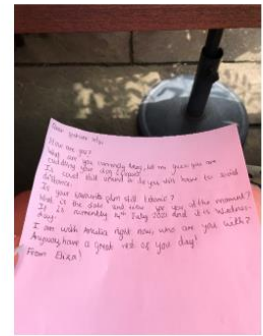 Dear future Eliza
How are you?
What are you currently doing, let me guess you are
cuddling your dog
Is covid still around or do you still have to social
distance.
Is your
What is the date and how are you at the moment?
It is currently 14th July 2021 and it is Wednes-
day.
I am with Amelia right now, who are you with?
Anyway, have a great rest of you day!
From Eliza!